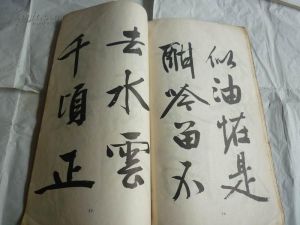 似油恠是
酣吟留不
去水雲
千頃正